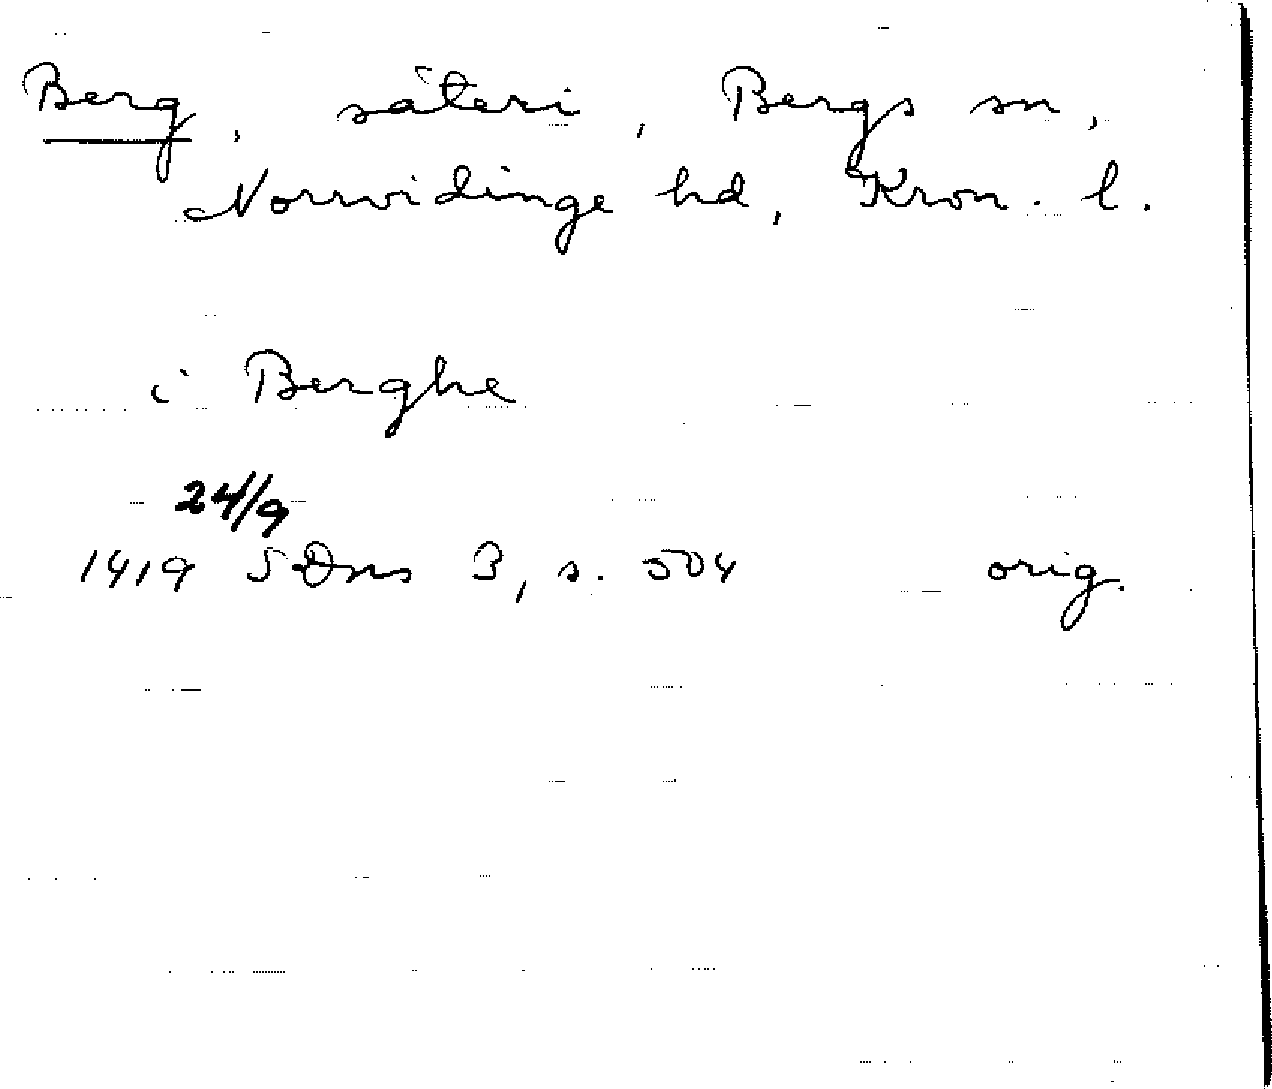 Berg, säteri, Bergs sn,
Norrvidinge hd, Kron. l.
i Berghe
24/9
1419 SDns 3, s. 504 orig.